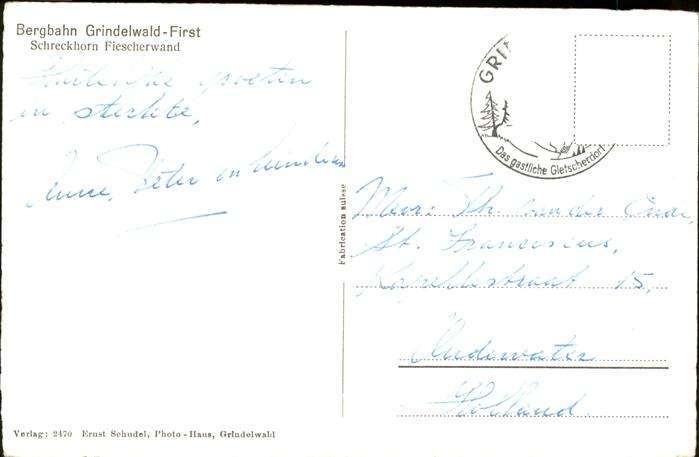 Bergbahn Grindelwald-First
Schreckhorn Fiescherwand
Hartelijke groeten
en sterkte,
Anne, Pieter en kinderen
GRI
Das gastliche Gletscherdorf
Fabrication suisse
Mevr. Th. van der
St. Franciscus,
Kapellestraat 15,
Oudewater
Holland.
Verlag: 2470 Ernst Schudel, Photo-Haus, Grindelwald